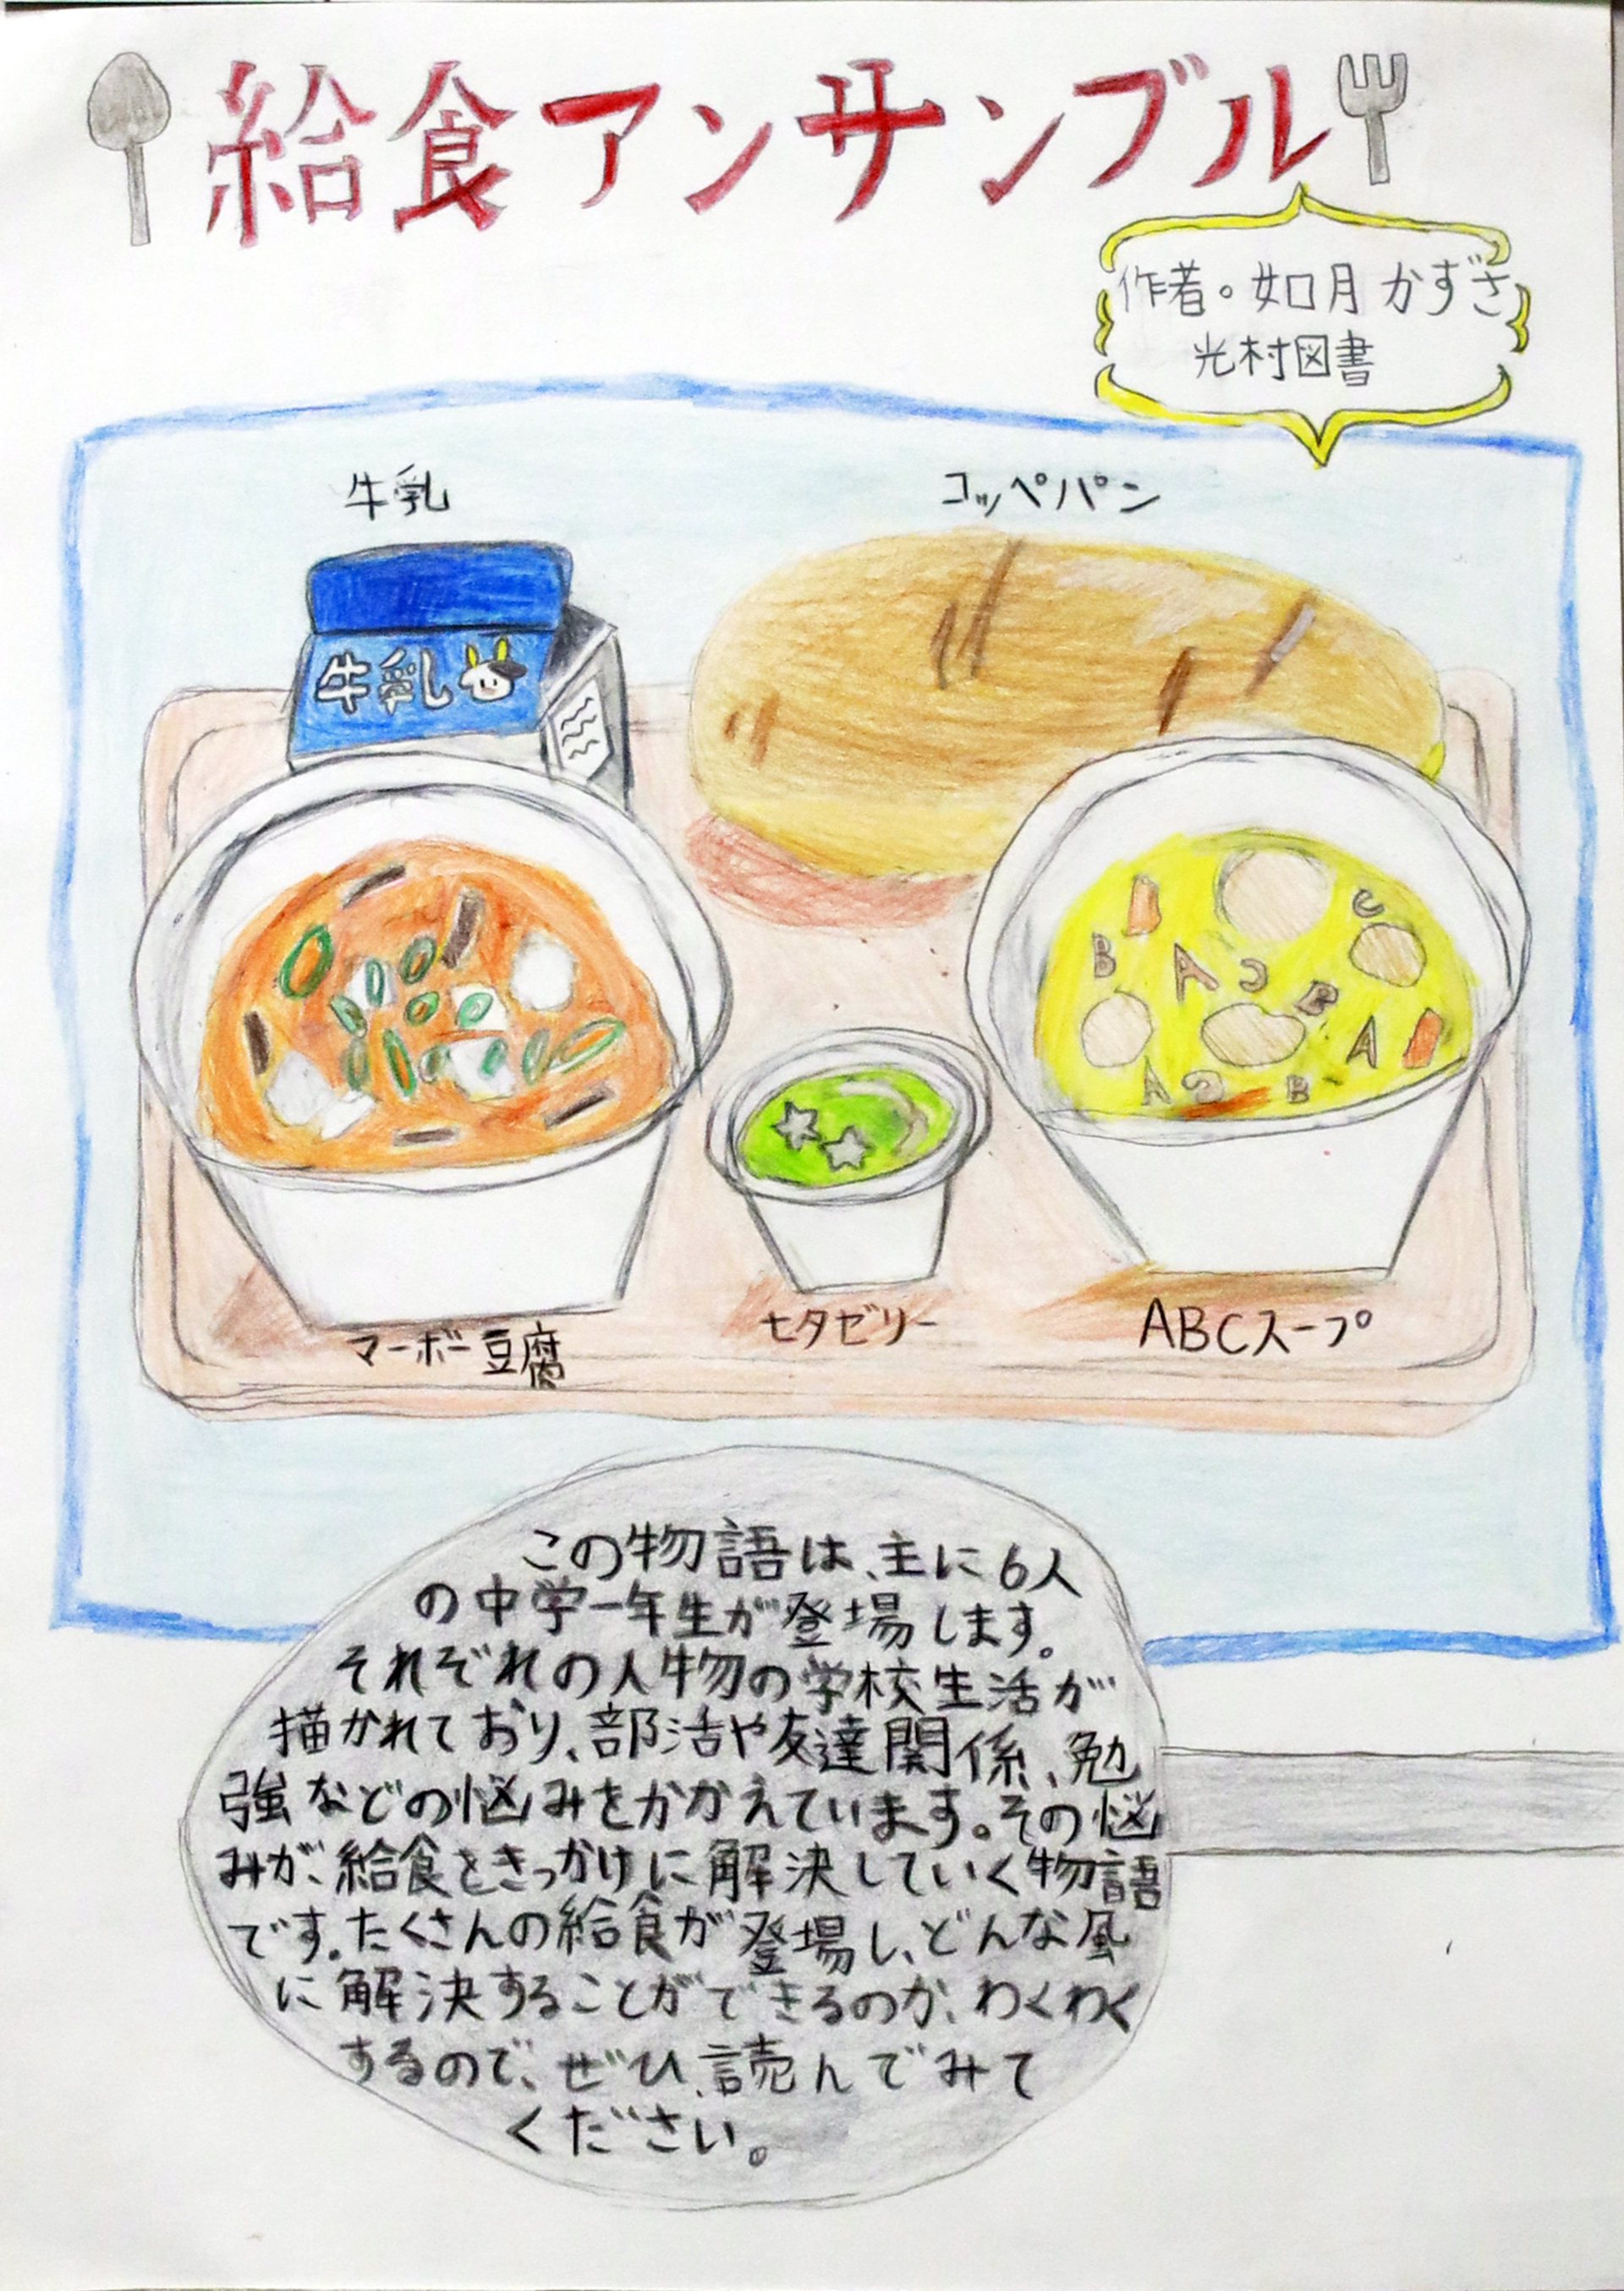 給食アンサンブル
作者。如月かずさ
光村図書
牛乳
コッペパン
牛乳
B
A
C
B
C
A
A
C
B
マーボー豆腐
七夕ゼリー
ABCスープ
この物語は、主に6人
の中学一年生が登場します。
それぞれの人物の学校生活が
描かれており、部活や友達関係、勉
強などの悩みをかかえています。その悩
みが、給食をきっかけに解決していく物語
です。たくさんの給食が登場し、どんな風
に解決することができるのか、わくわく
するので、ぜひ、読んでみて
ください。